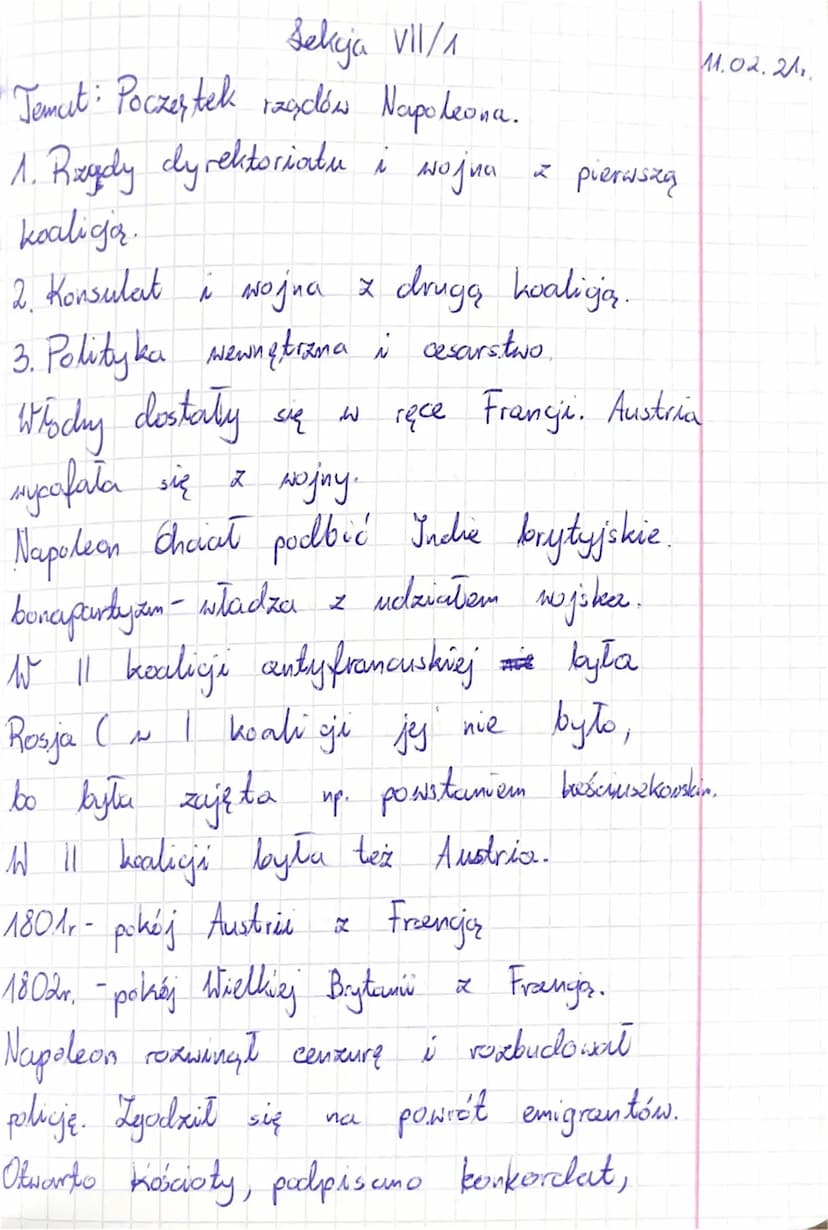 Lekcja VII/1
11.02.21r.
Temat: Początek rządów Napoleona.
1. Rządy dyrektoriatu i wojna z pierwszą
koalicją.
2. Konsulat i wojna z drugą koalicją.
3. Polityka wewnętrzna i cesarstwo.
Włochy dostały się w ręce Francji. Austria
wycofała się z wojny.
Napoleon chciał podbić Indie brytyjskie.
bonapartyzm - władza z udziałem wojska.
W II koalicji antyfrancuskiej była
Rosja ( w I koalicji jej nie było,
bo była zajęta np. powstaniem kościuszkowskim.
W II koalicji była też Austria.
1801r - pokój Austrii z Francją
1802r. - pokój Wielkiej Brytanii z Francją.
Napoleon rozwinął cenzurę i rozbudował
policję. Zgodził się na powrót emigrantów.
Otwarto kościoły, podpisano konkordat,